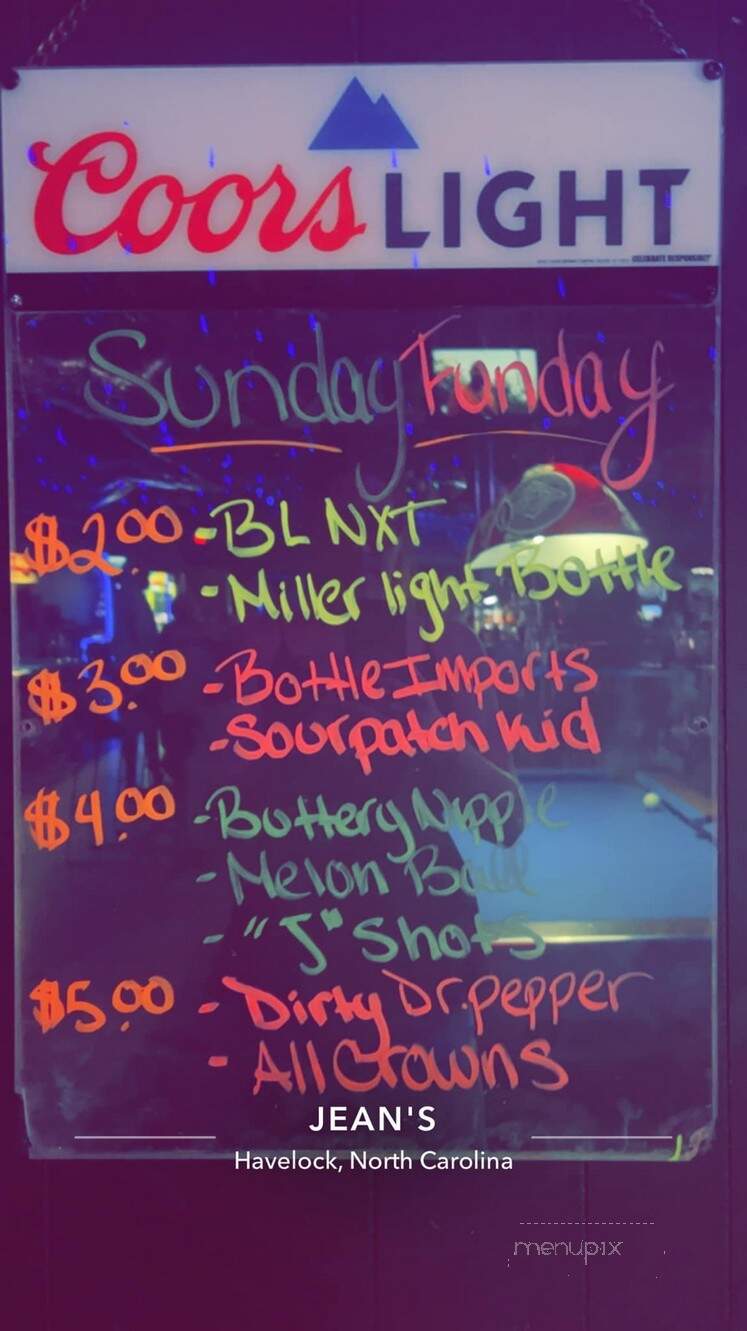 Coors LIGHT
CELEBRATE RESPONSIBLY
Sunday Funday
$2.00 - BL NXT
- Miller light Bottle
$3.00 - Bottle Imports
- Sourpatch Kid
$4.00 - Buttery Nipple
- Melon Ball
- "J" Shots
$5.00 - Dirty Dr. pepper
- All Crowns
JEAN'S
Havelock, North Carolina
menupix